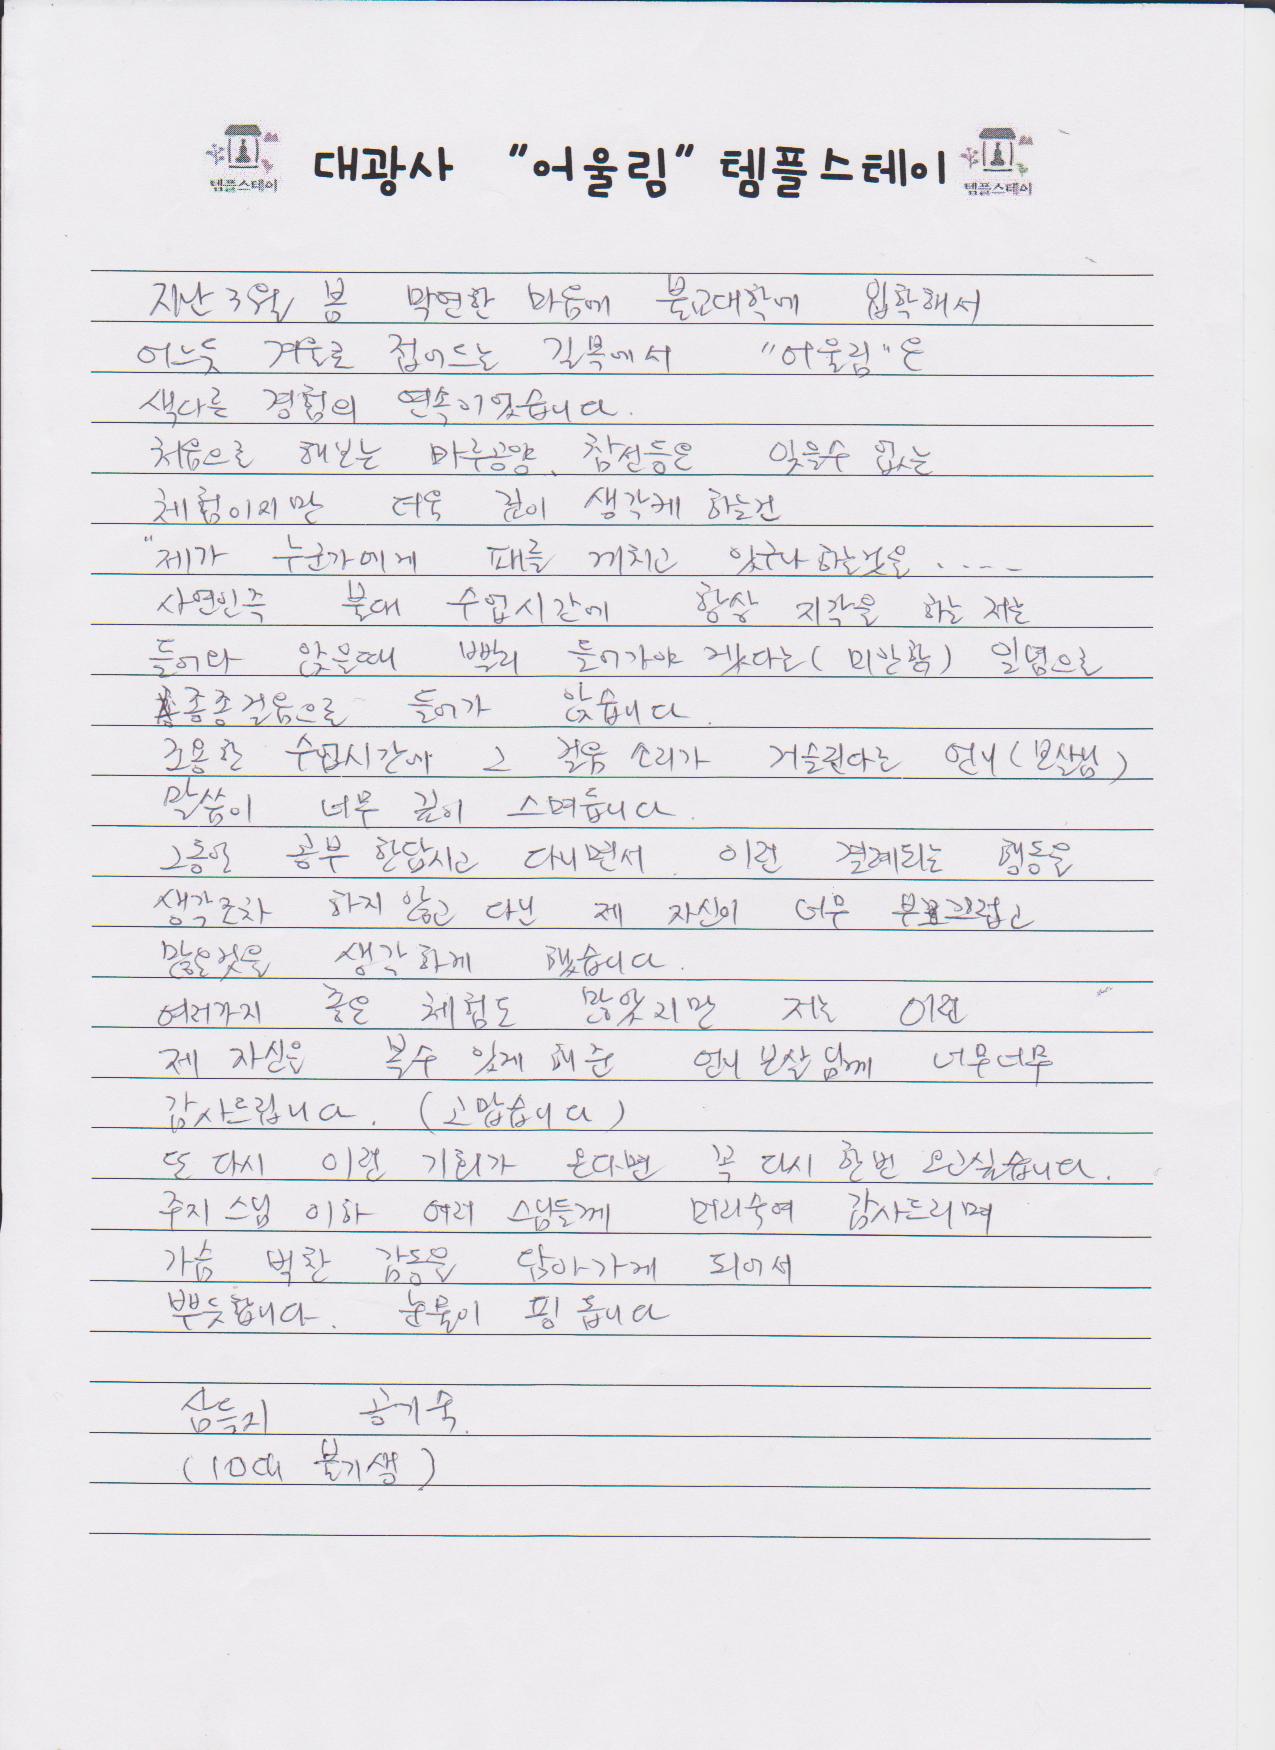 템플스테이 대광사 "어울림" 템플스테이 템플스테이
지난 3월 봄 막연한 마음에 불교대학에 입학해서
어느듯 겨울로 접어드는 길목에서 "어울림"은
색다른 경험의 연속이었습니다.
처음으로 해보는 마루공양, 참선등은 잊을수 없는
체험이지만 더욱 깊이 생각케 하는건
"제가 누군가에게 패를 끼치고 있구나 하는것을 .....
사연인즉 불대 수업시간에 항상 지각을 하는 저는
들어와 앉을때 빨리 들어가야 겠다는 (미안함) 일념으로
종종걸음으로 들어가 앉습니다.
조용한 수업시간에 그 걸음 소리가 거슬린다는 언니 (보살님)
말씀이 너무 깊이 스며듭니다.
그동안 공부 한답시고 다니면서 이런 결례되는 행동을
생각조차 하지 않고 다닌 제 자신이 너무 부끄럽고
많은것을 생각하게 했습니다.
여러가지 좋은 체험도 많았지만 저는 이런
제 자신을 볼수 있게 해준 언니 보살님께 너무너무
감사드립니다. (고맙습니다)
또 다시 이런 기회가 온다면 꼭 다시 한번 오고싶습니다.
주지스님 이하 여러 스님들께 머리숙여 감사드리며
가슴 벅찬 감동을 담아가게 되어서
뿌듯합니다. 눈물이 핑 돕니다
심득지 공기숙.
(10대 불기생)